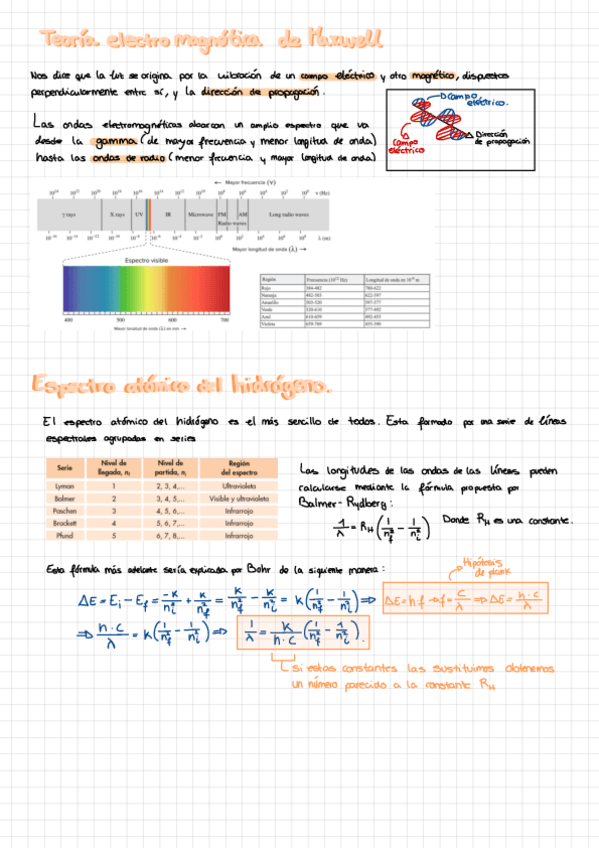 Teoría electro magnética de Maxwell
Nos dice que la luz se origina por la vibración de un campo eléctrico y otro magnético, dispuestos
perpendicularmente entre sí, y la dirección de propagación.
Campo
eléctrico.
Campo
eléctrico
Dirección
de propagación
Las ondas electromagnéticas abarcan un amplio espectro que va
desde la gamma (de mayor frecuencia y menor longitud de onda)
hasta las ondas de radio (menor frecuencia y mayor longitud de onda)
← Mayor frecuencia (V)
ν (Hz)
γ rays X rays UV IR Microwave FM AM Long radio waves
Radio waves
λ (m)
Mayor longitud de onda (λ) →
Espectro visible
400 500 600 700
Mayor longitud de onda (λ) en nm →
Región Frecuencia (10¹² Hz) Longitud de onda en 10⁻⁹ m
Rojo 384-482 780-622
Naranja 482-503 622-597
Amarillo 503-520 597-577
Verde 520-610 577-492
Azul 610-659 492-455
Violeta 659-769 455-390
Espectro atómico del hidrógeno.
El espectro atómico del hidrógeno es el más sercillo de todos. Esta formado por una serie de líneas
espectrales agrupadas en series
Serie Nivel de llegada, nf Nivel de partida, ni Región del espectro
Lyman 1 2, 3, 4,... Ultravioleta
Balmer 2 3, 4, 5,... Visible y ultravioleta
Paschen 3 4, 5, 6,... Infrarrojo
Brackett 4 5, 6, 7,... Infrarrojo
Pfund 5 6, 7, 8,... Infrarrojo
Las longitudes de las ondas de las líneas pueden
calcularse mediante la fórmula propuesta por
Balmer-Rydberg:
1/λ = RH (1/nf² − 1/ni²) Donde RH es una constante.
Esta fórmula más adelante sería explicada por Bohr de la siguiente manera:
Hipótesis
de plank
ΔE = Ei − Ef = −K/ni² + K/nf² = K/nf² − K/ni² = K(1/nf² − 1/ni²) ⇒
ΔE = h·f → f = c/λ ⇒ ΔE = h·c/λ
⇒ h·c/λ = K(1/nf² − 1/ni²) ⇒ 1/λ = K/h·c (1/nf² − 1/ni²).
si estas constantes las sustituimos obtenemos
un número parecido a la constante RH